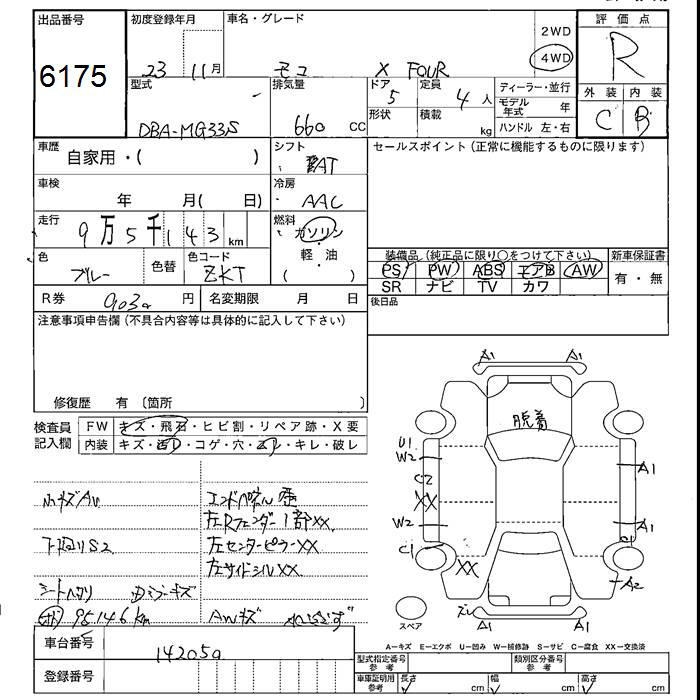 出品番号
6175
初度登録年月
23 11月
車名・グレード
モコ X FOUR
2WD
4WD
評価点
R
外装 内装
C B
型式
DBA-MG33S
排気量
660 cc
ドア
5
定員
4人
形状
積載
kg
ディーラー・並行
モデル年式 年
ハンドル 左・右
車歴
自家用・( )
シフト
車検
年 月( 日)
冷房
AAC
走行
9万5千143km
燃料
ガソリン・
軽・油
( )
色
ブルー
色替
色コード
ZKT
R券
円
名変期限 月 日
セールスポイント (正常に機能するものに限ります)
装備品 (純正品に限り○をつけて下さい)
PS PW ABS エアB AW
SR ナビ TV カワ
新車保証書
有・無
後日品
注意事項申告欄 (不具合内容等は具体的に記入して下さい)
修復歴 有 (箇所 )
検査員記入欄
FW キズ・飛石・ヒビ割・リペア跡・X要
内装 キズ・汚レ・コゲ・穴・スレ・キレ・破レ
下回りS2
左Rフェンダー
左センターピラーXX
左サイドシルXX
95146km
AWキズ
車台番号
登録番号
A1 A1
脱着
U1
W2
C2
XX
W2
C1
XX
A1
A1
C1
A2
A1 A1
スペア
A-キズ E-エクボ U-凹み W-補修跡 S-サビ C-腐食 XX-交換済
型式指定番号
参考
類別区分番号
参考
車庫証明用
参考
長さ cm
幅 cm
高さ cm